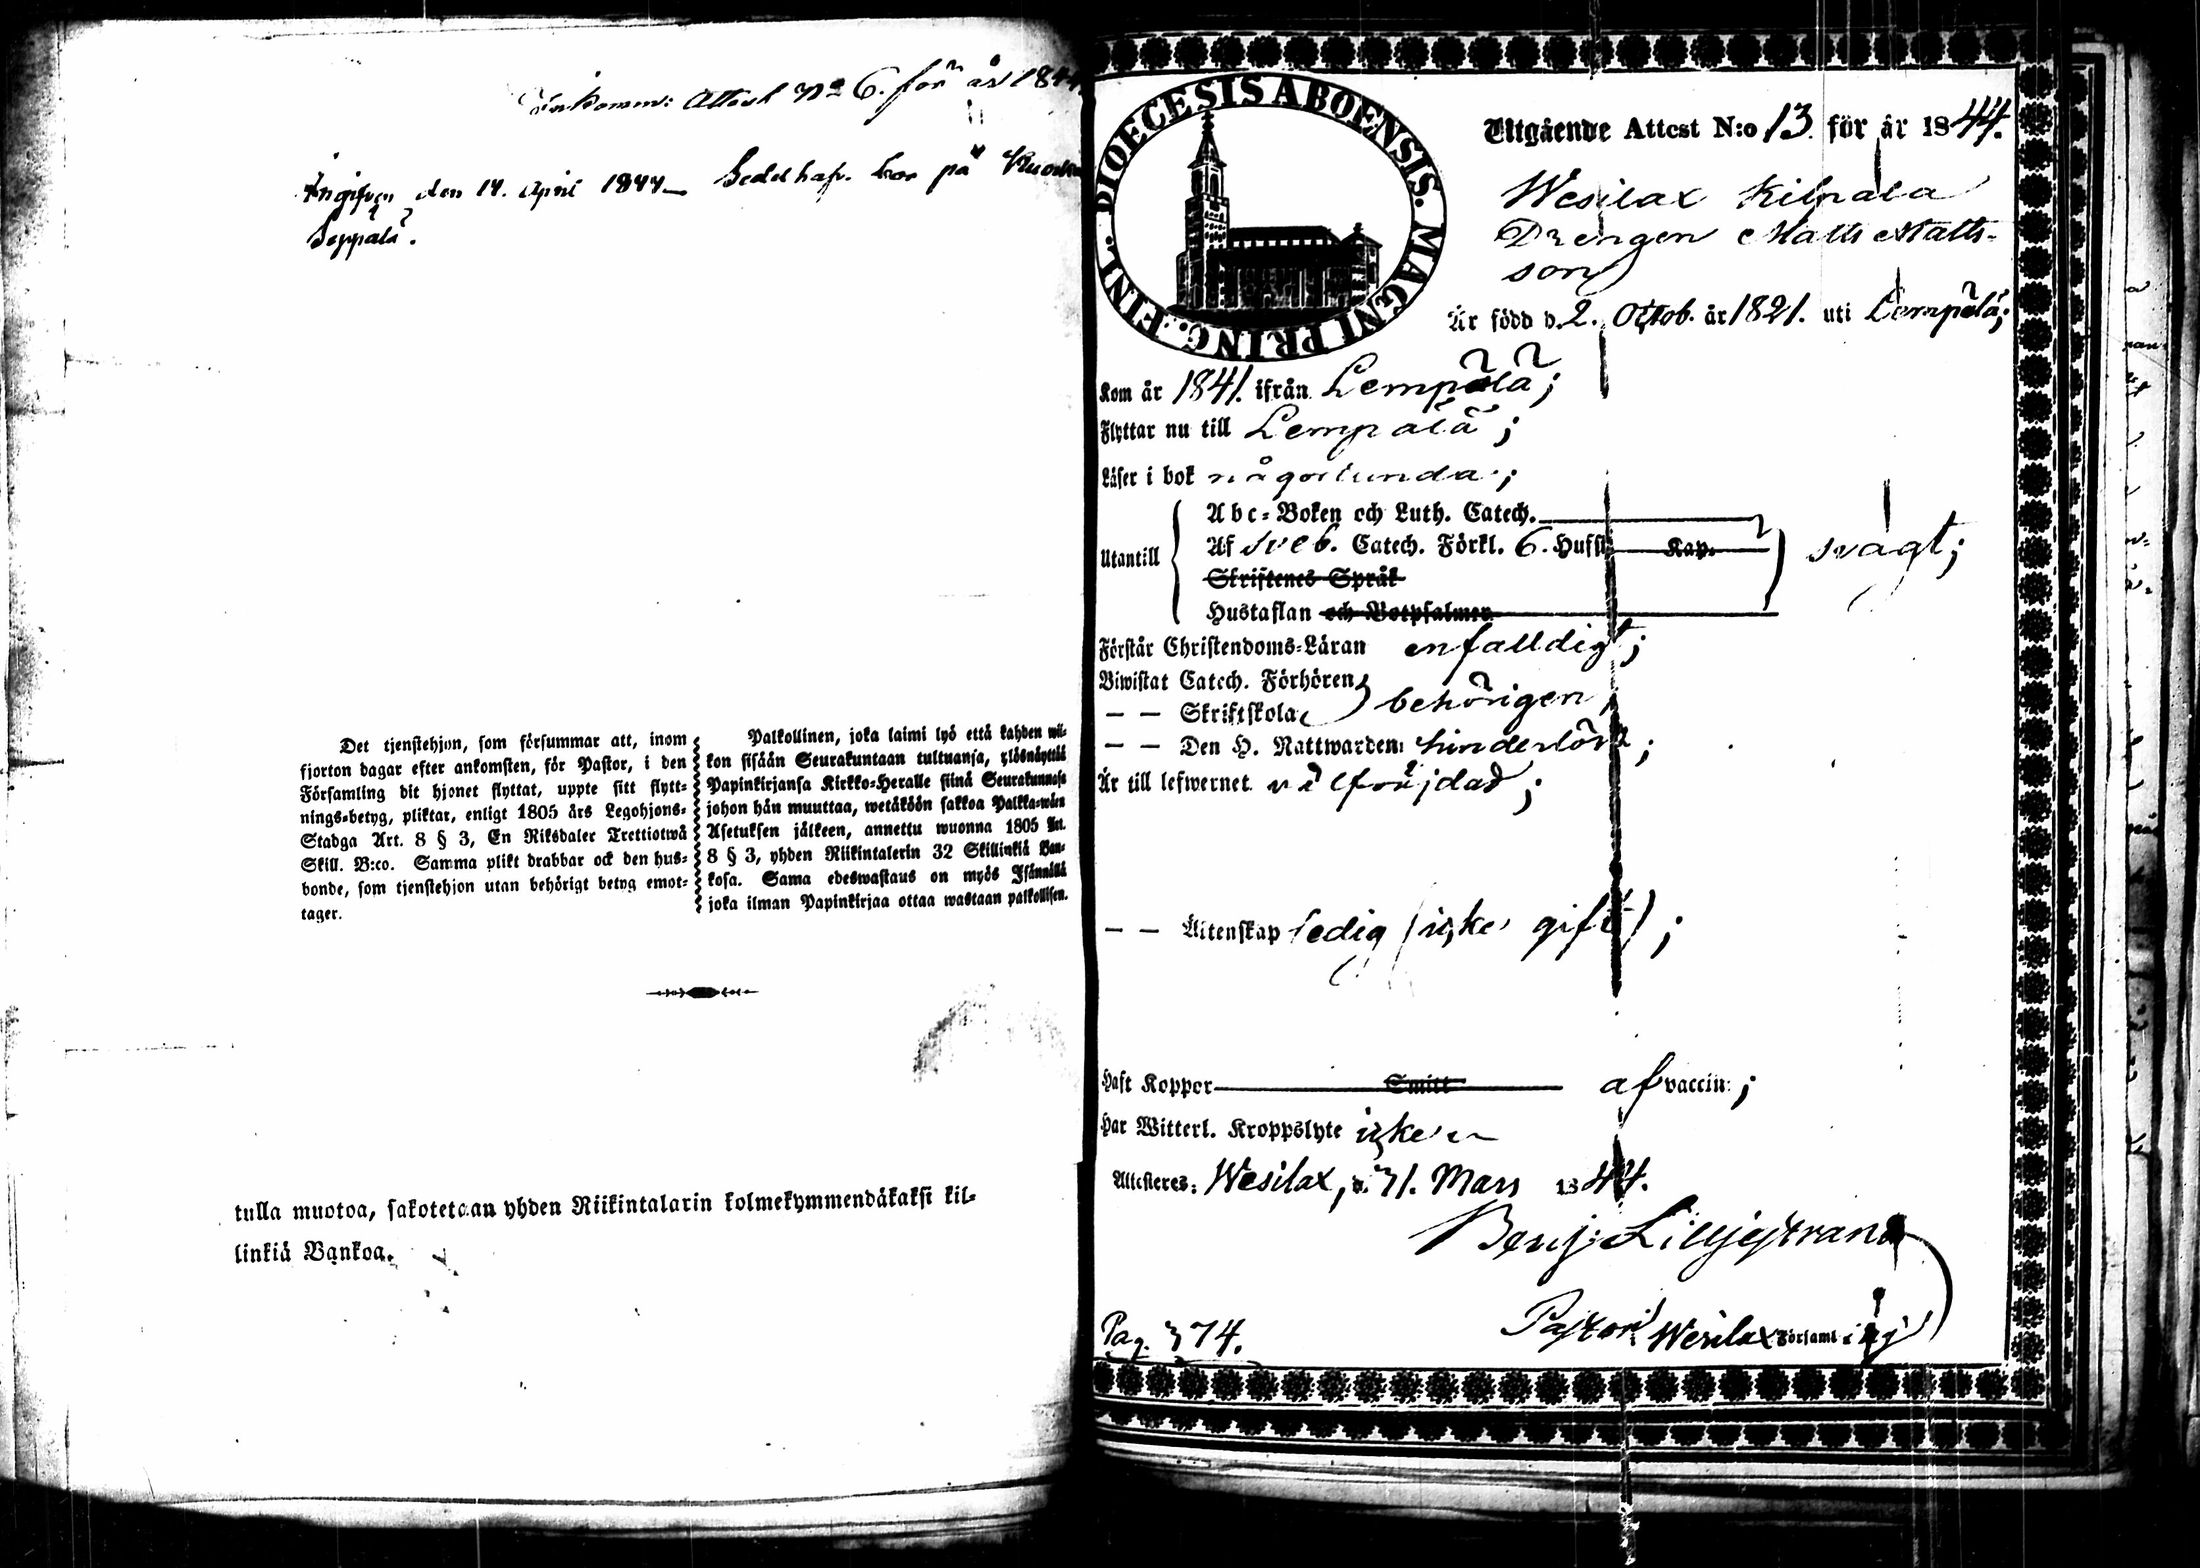 Inkomm: Attest No 6. för år 1844.
Angifven den 14. April 1844 — Sedelhafv. bor på
Seppälä.
Det tjenstehjon, som försummar att, inom
fjorton dagar efter ankomsten, för Pastor, i den
Församling dit hjonet flyttat, uppte sitt flytt-
nings-betyg, pliktar, enligt 1805 års Legohjons-
Stadga Art. 8 § 3, En Riksdaler Trettiotwå
Skill. B:co. Samma plikt drabbar ock den hus-
bonde, som tjenstehjon utan behörigt betyg emot-
tager.
Palkollinen, joka laimi lyö että kahden wii-
kon sisään Seurakuntaan tultuansa, ylösnäyttää
Papinkirjansa Kirkko-Heralle siinä Seurakunnasa
johon hän muuttaa, wetäköön sakkoa Palkka-wäen
Asetuksen jälkeen, annettu wuonna 1805 Art.
8 § 3, yhden Riikintalerin 32 Skillinkiä Ban-
kosa. Sama edeswastaus on myös Isännällä
joka ilman Papinkirjaa ottaa wastaan palkollisen.
tulla muotoa, sakotetaan yhden Riikintalarin kolmekymmendäkaksi kil-
linkiä Bankoa.
DIOECESIS ABOENSIS. MAGNI PRINC. FINL.
Utgående Attest N:o 13. för år 1844.
Wesilax Kilpala
Drengen Matts Matts-
son
Är född d. 2. Octob. år 1821. uti Lempälä;
Kom år 1841. ifrån Lempälä;
Flyttar nu till Lempälä;
Läser i bok någorlunda;
Utantill
Abc-Boken och Luth. Catech.
Af Sveb. Catech. Förkl. 6. Hufst. Kap. svagt;
Skriftenes Språk
Hustaflan och Botpsalmer
Förstår Christendoms-Läran enfalldigt;
Biwistat Catech. Förhören
— — Skriftskola behörigen,
— — Den H. Nattwarden: hinderlöst;
Är till lefwernet välfräjdad;
— — Äktenskap ledig (icke gift);
Haft Koppor Smitt af vaccin:;
Har Witterl. Kroppslyte icke
Attesteres: Wesilax, d. 31. Mars 1844.
Benj: Lilljestrand
Pastor i Wesilax Församling
Pag. 374.